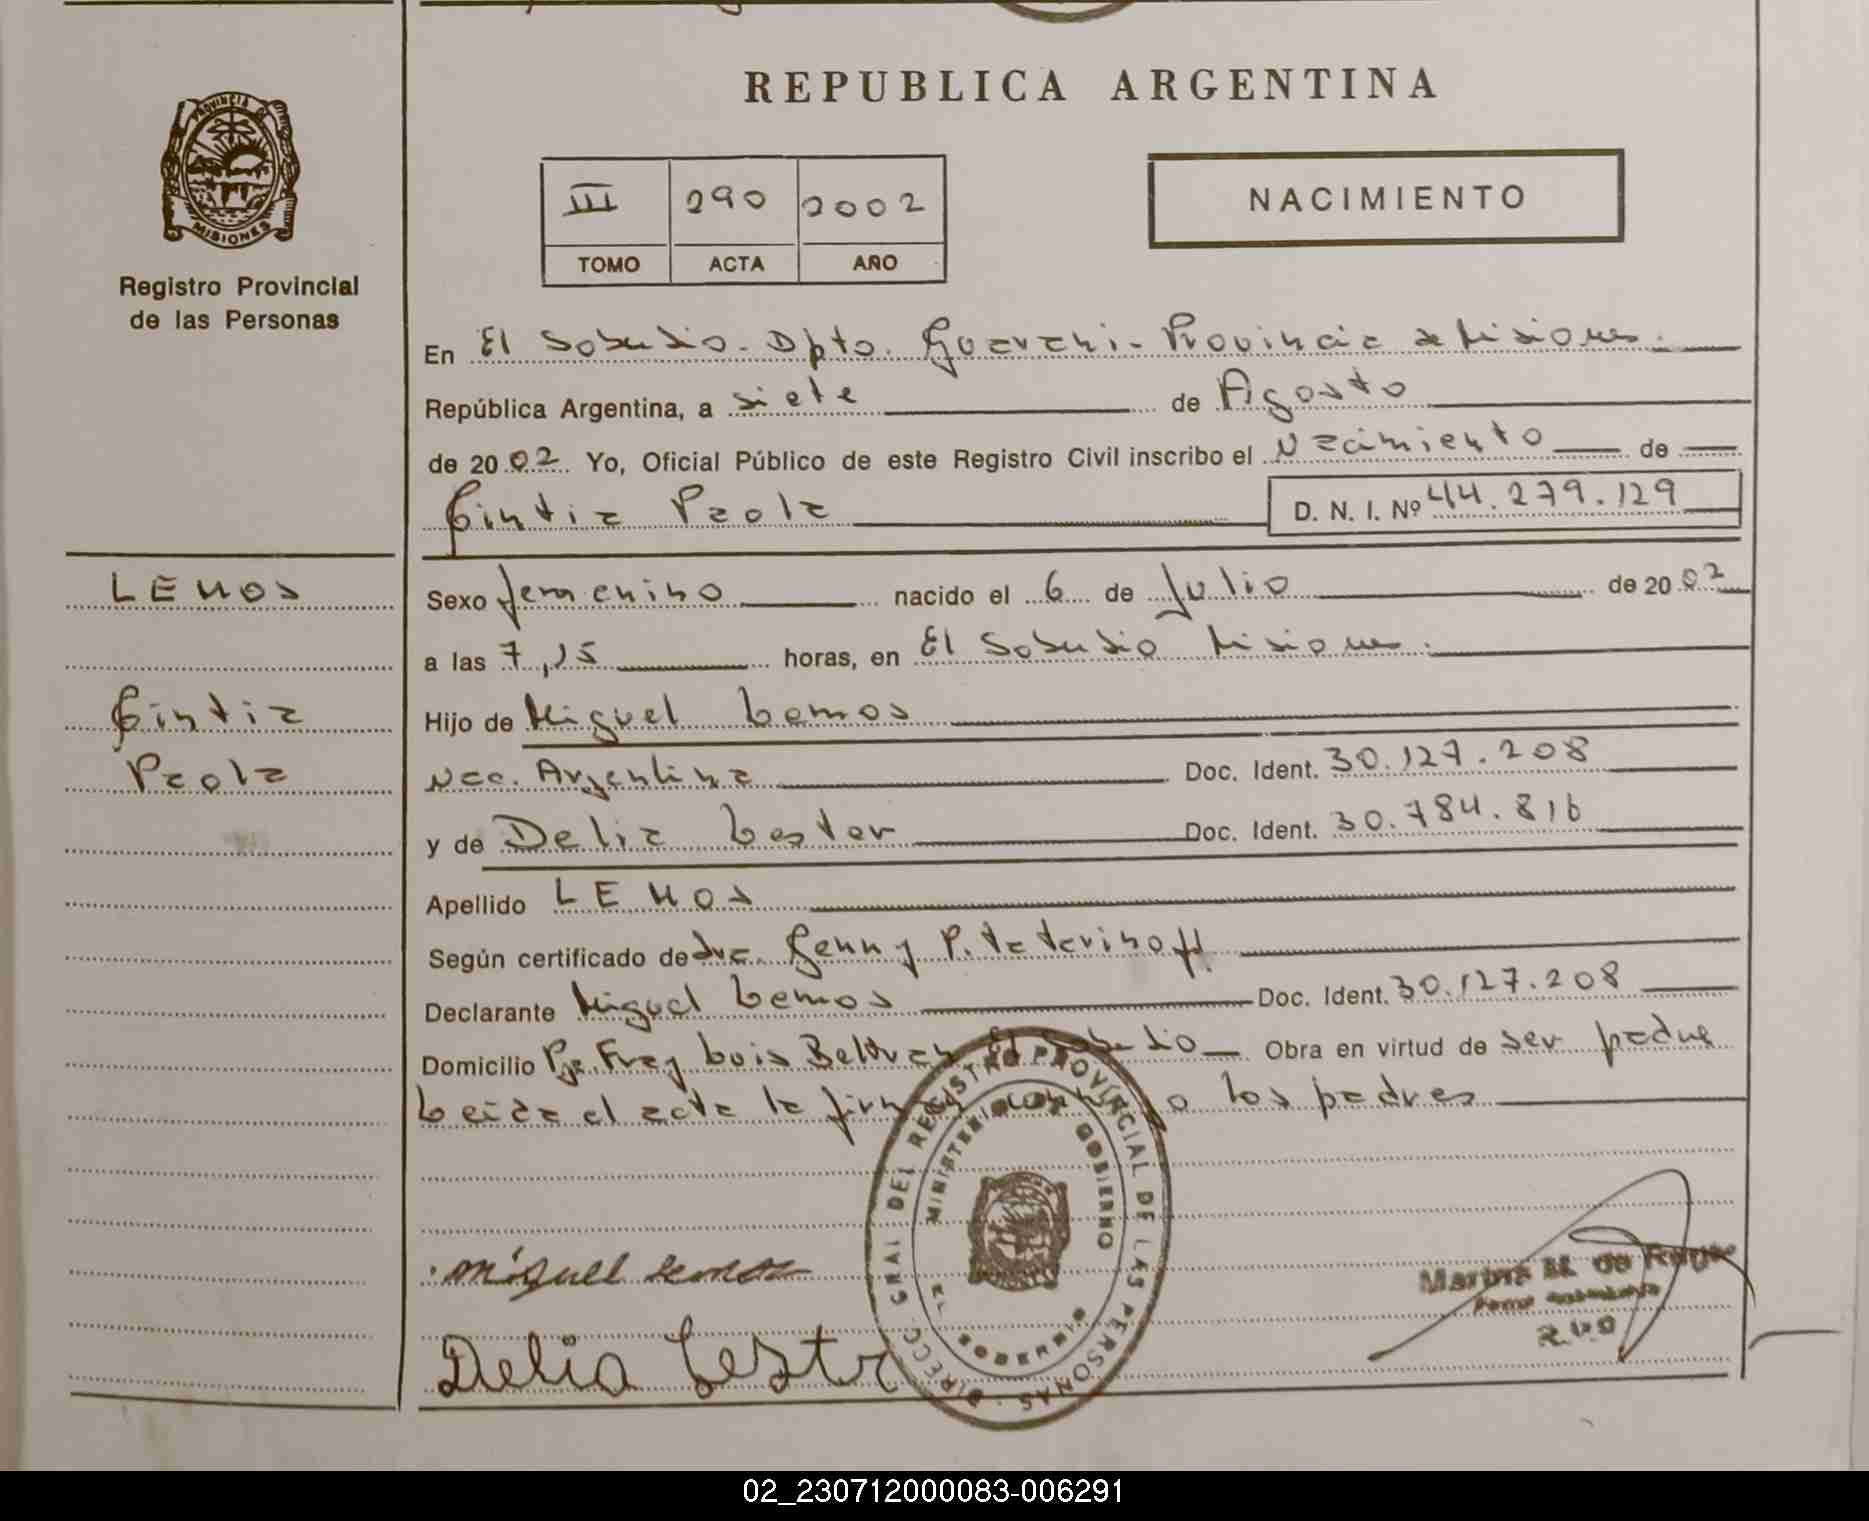 REPUBLICA ARGENTINA
PROVINCIA DE
MISIONES
Registro Provincial
de las Personas
III 290 2002
TOMO ACTA AÑO
NACIMIENTO
En El Soberbio. Dpto. Guarani. Provincia de Misiones.
República Argentina, a siete de Agosto
de 2002 Yo, Oficial Público de este Registro Civil inscribo el Nacimiento de
Cintia Paola D. N. I. Nº 44.279.129
LEMOS
Cintia
Paola
Sexo femenino nacido el 6 de Julio de 2002
a las 7,15 horas, en El Soberbio Misiones.
Hijo de Miguel Lemos
Nac. Argentina Doc. Ident. 30.127.208
y de Delia Lester Doc. Ident. 30.784.816
Apellido LEMOS
Según certificado de dra. Genny P.
Declarante Miguel Lemos Doc. Ident. 30.127.208
Domicilio Pje. Fray Luis Beltran El Soberbio Obra en virtud de ser padre
Leida el acta la firman o los padres
miguel lemos
Delia Lester
DIRECC. GRAL DEL REGISTRO PROVINCIAL DE LAS PERSONAS
MINISTERIO GOBIERNO
EL SOBERBIO
Marina M. de
02_230712000083-006291